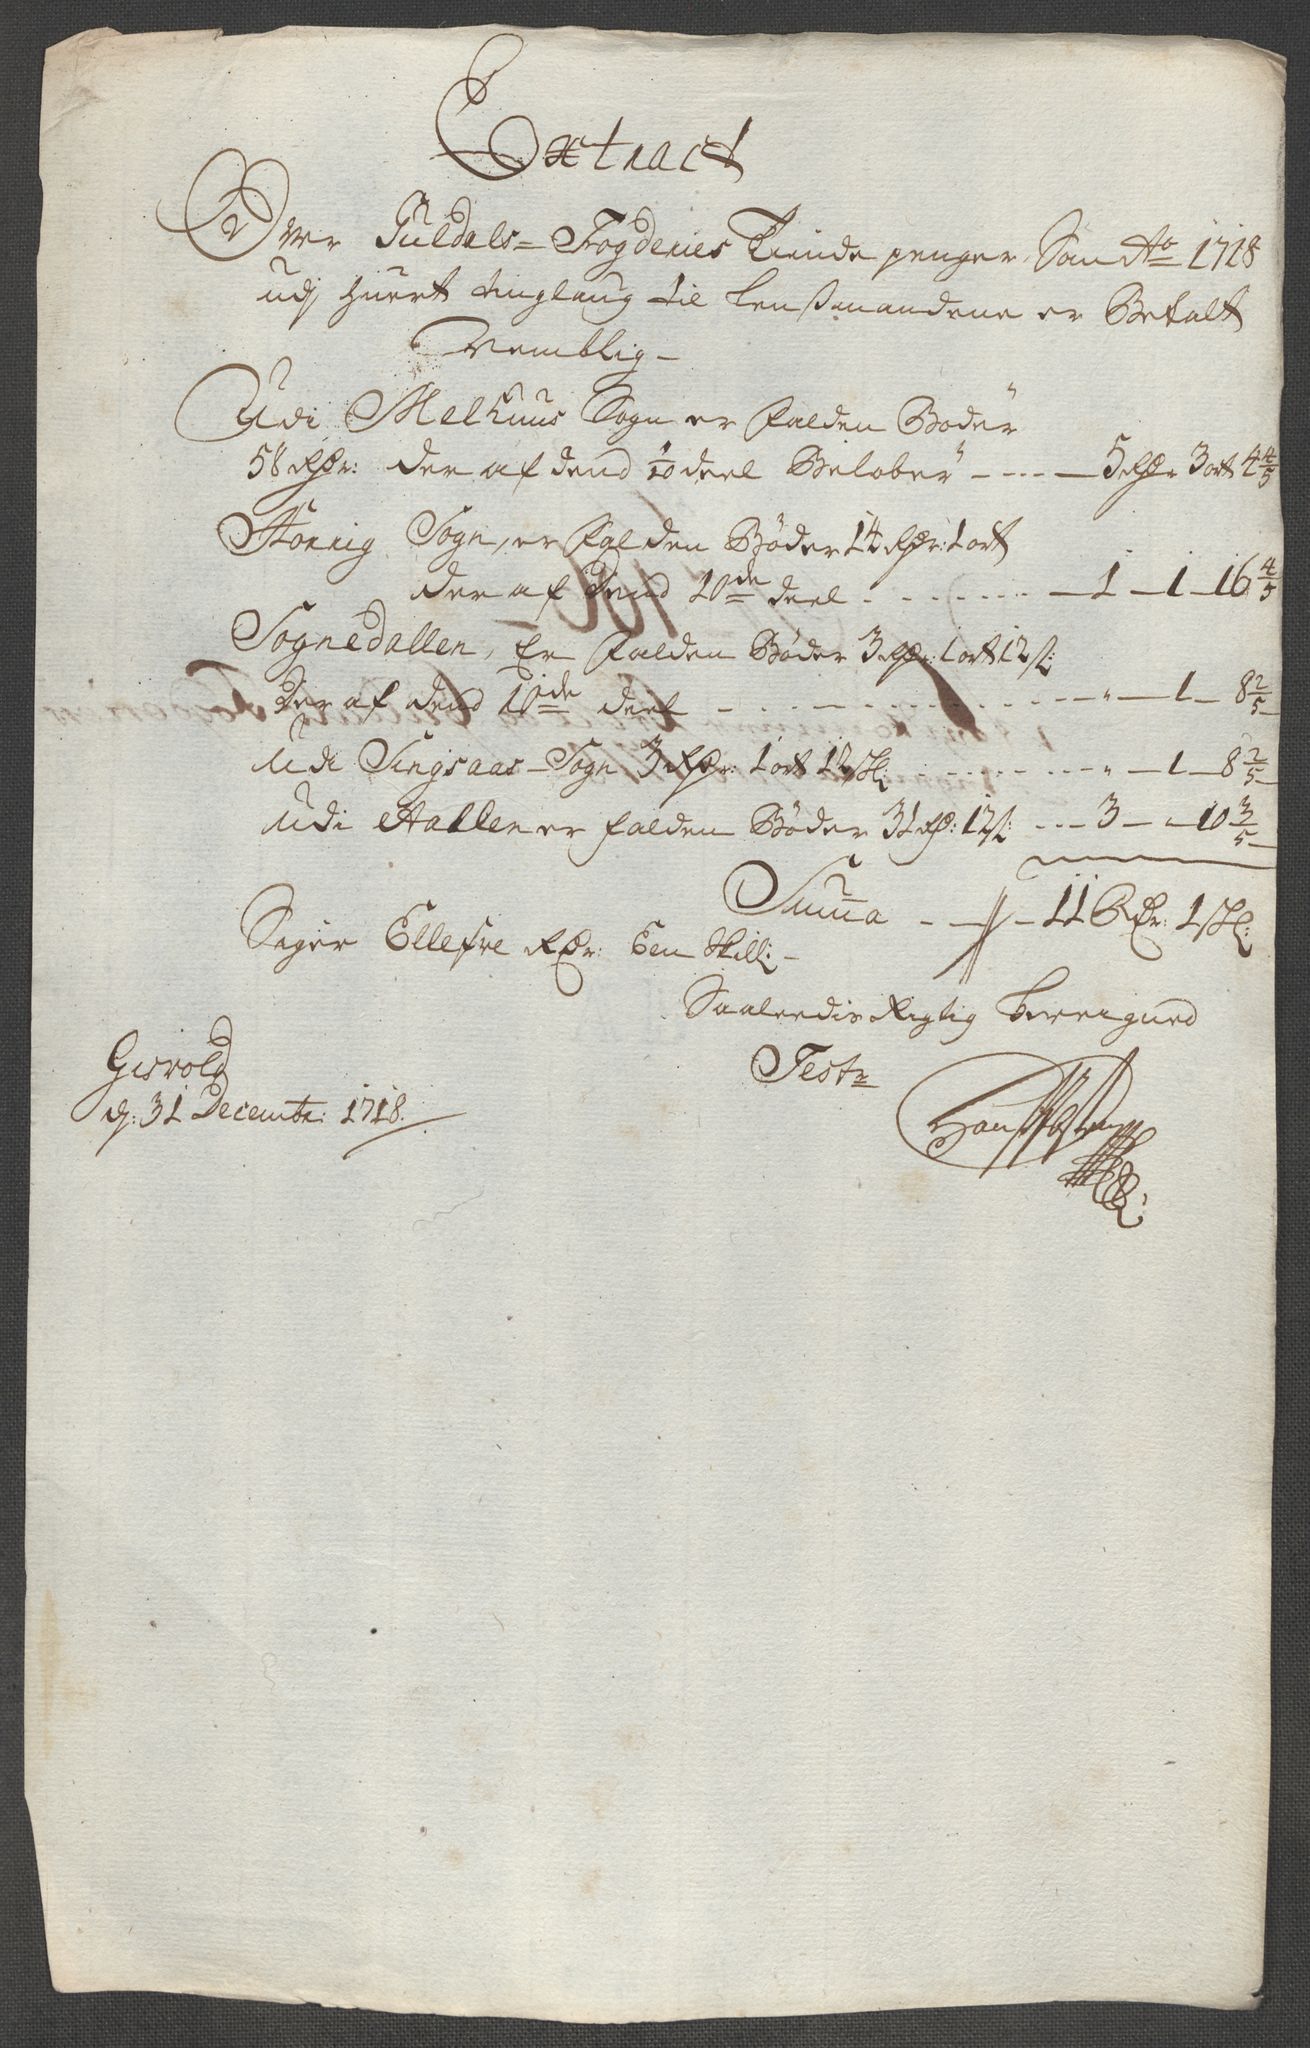 Extract
Over Guldals= Fogderies Tiinde penger, Som Ao 1718
udj huert tinglaug til Lensmandene er Betalt
Nemblig –
Udi Melhuus Sogn er falden Bøder
58 Rdr: der af dend 1/10 deel Beløber – – – – 5 Rdr 3 ort 4 4/5
Størrig Sogn, er falden Bøder 14 Rdr: 1 ort
der af dend 10de deel . . . . . . . . 1 – 1 – 16 4/5
Sognedallen, Er falden Bøder 3 Rdr: 1 ort 12 s:
der af dend 10de deel – . . . . . . . . " – 1 – 8 2/5
Udi Singsaas – Sogn 3 Rdr: 1 ort 12 sk: . . . . . " – 1 – 8 2/5
Udi Hallen er falden Bøder 31 Rdr: 12 s: . . . 3 – " – 10 3/5
Summa – – 11 Rdr: 1 sk:
Siger Ellefve Rdr: Een Skill: –
Saaleedis Rigtig bereigned
Teste
Gisvold
d: 31 Decembr: 1718.